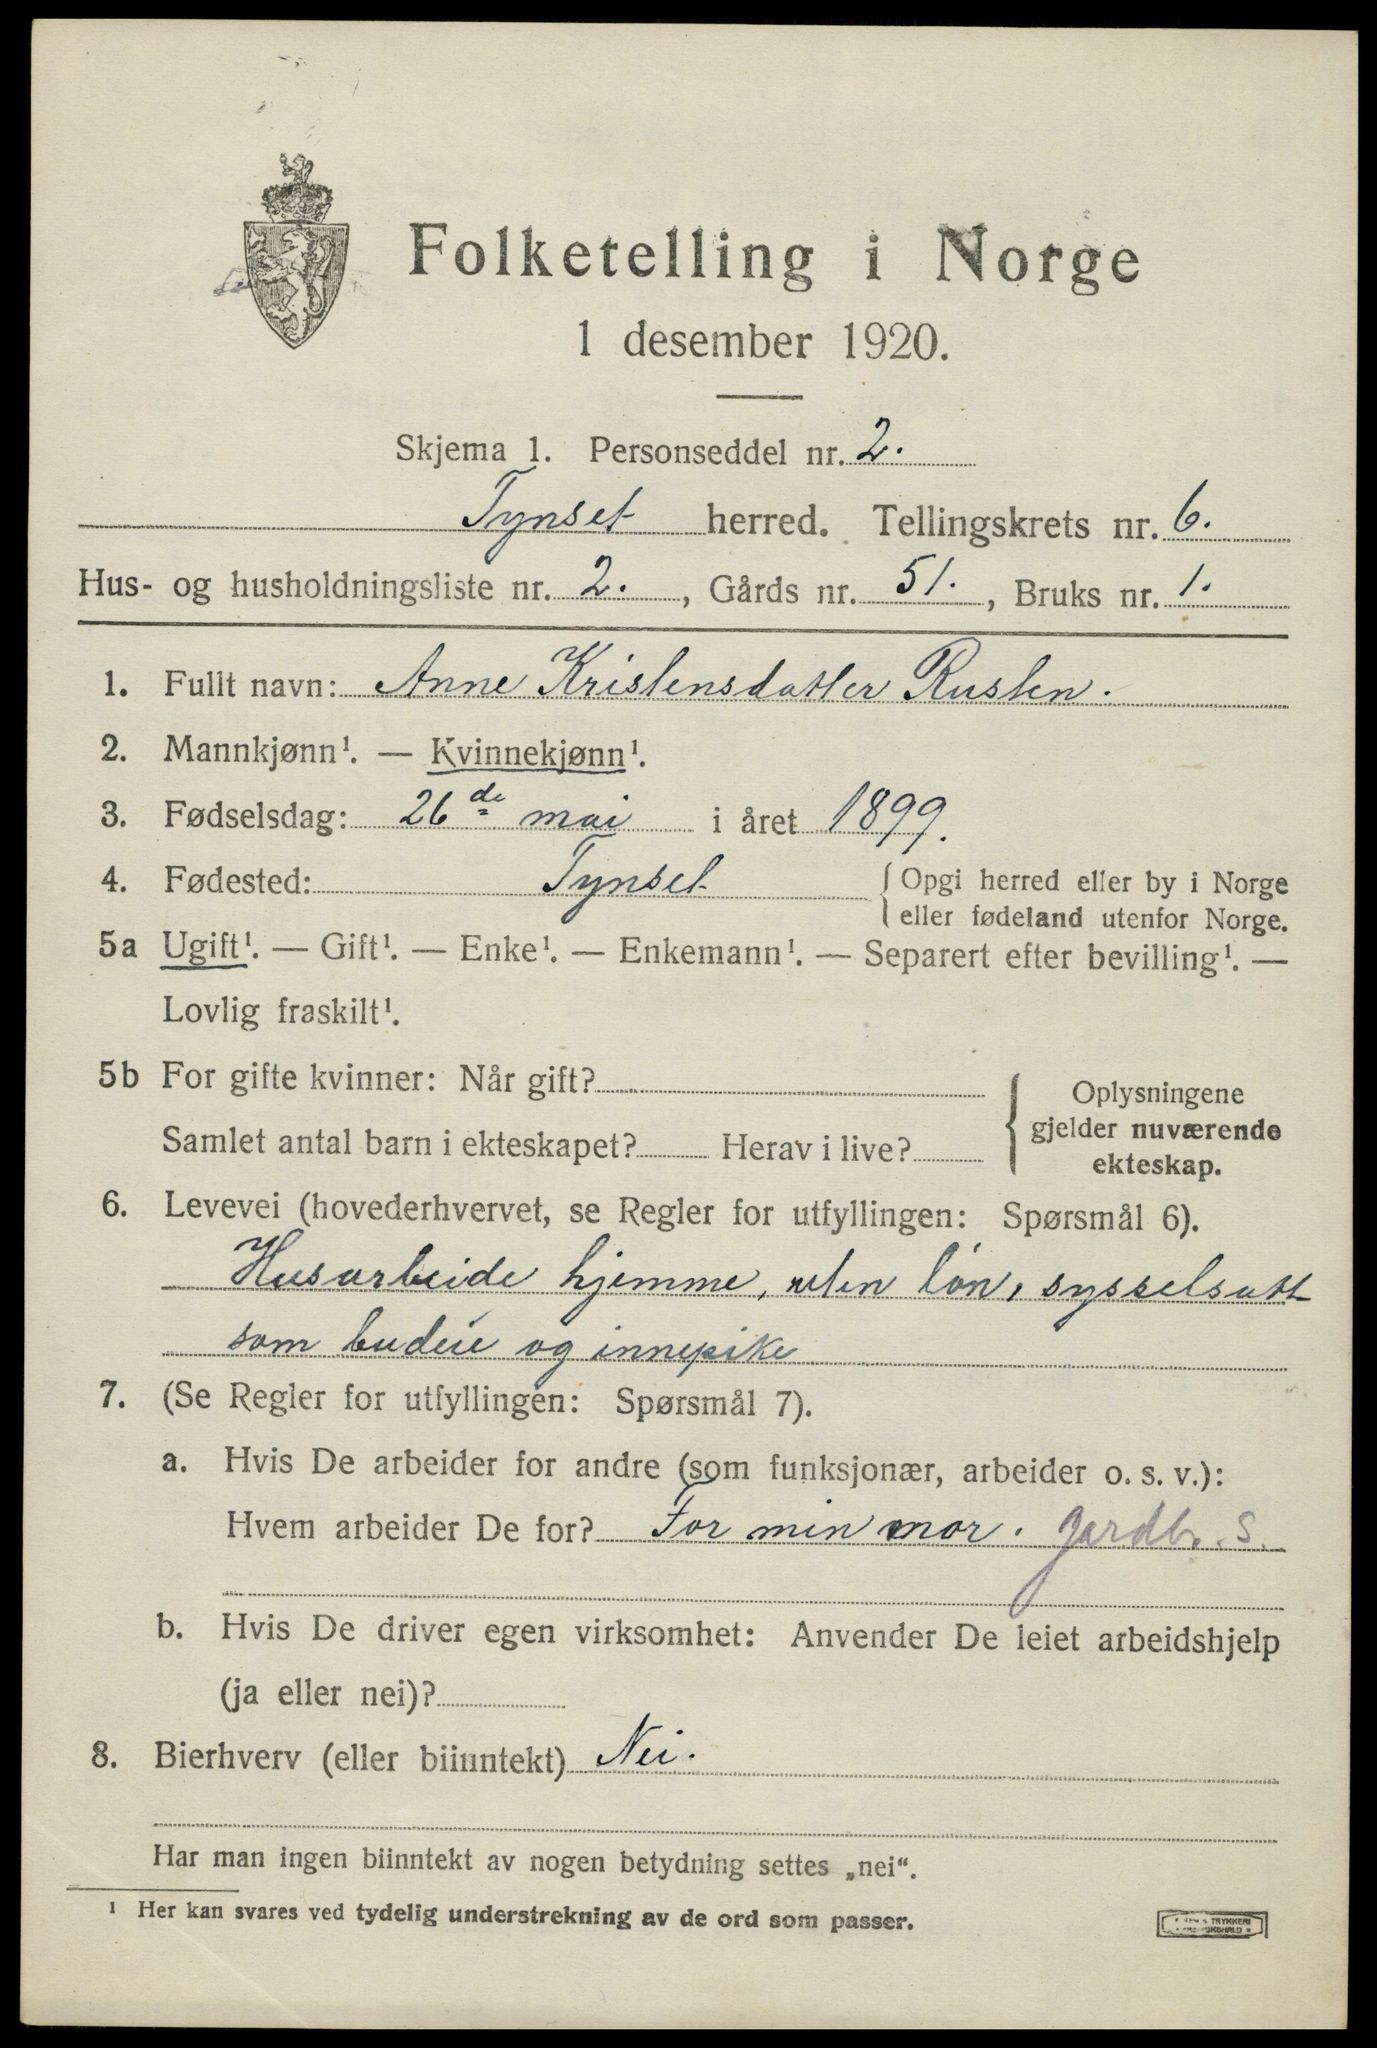 Folketelling i Norge
1 desember 1920.
Skjema 1. Personseddel nr. 2.
Tynset herred. Tellingskrets nr. 6.
Hus- og husholdningsliste nr. 2., Gårds nr. 51., Bruks nr. 1.
1. Fullt navn: Anne Kristensdatter Rusten.
2. Mannkjønn¹. — Kvinnekjønn¹.
3. Fødselsdag: 26de mai i året 1899.
4. Fødested: Tynset {Opgi herred eller by i Norge
eller fødeland utenfor Norge.
5a Ugift¹. — Gift¹. — Enke¹. — Enkemann¹. — Separert efter bevilling¹. —
Lovlig fraskilt¹.
5b For gifte kvinner: Når gift?
Samlet antal barn i ekteskapet? Herav i live?
{Oplysningene
gjelder nuværende
ekteskap.
6. Levevei (hovederhvervet, se Regler for utfyllingen: Spørsmål 6).
Husarbeide hjemme, uten løn, sysselsatt
som budeie og innepike
7. (Se Regler for utfyllingen: Spørsmål 7).
a. Hvis De arbeider for andre (som funksjonær, arbeider o. s. v.):
Hvem arbeider De for? For min mor. gardbr. S.
b. Hvis De driver egen virksomhet: Anvender De leiet arbeidshjelp
(ja eller nei)?
8. Bierhverv (eller biinntekt) Nei.
Har man ingen biinntekt av nogen betydning settes „nei“.
¹ Her kan svares ved tydelig understrekning av de ord som passer.
TRYKKERI